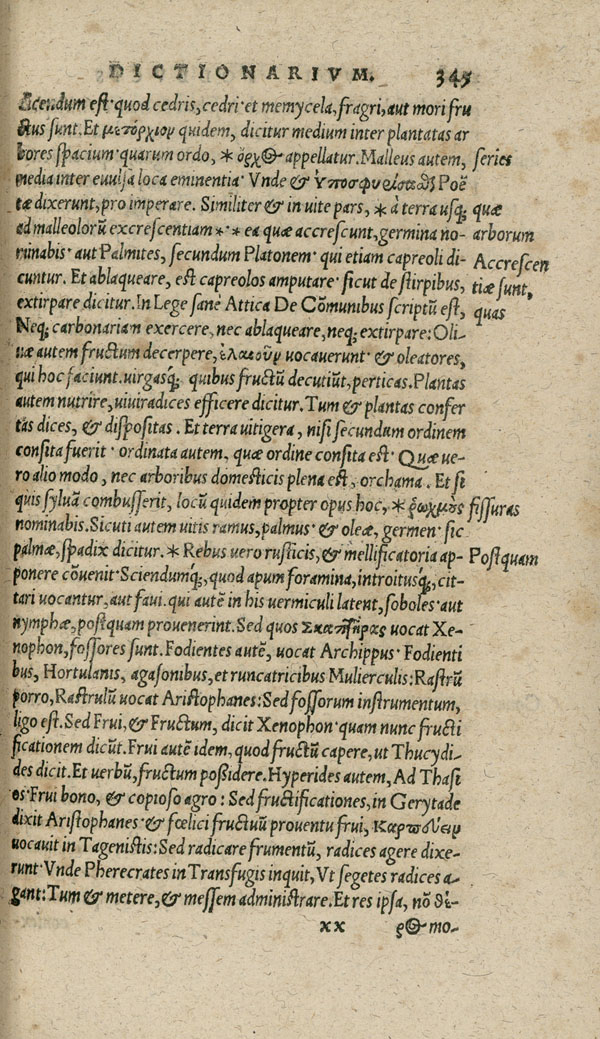 DICTIONARIVM. 345
dicendum est·quod cedris, cedri·et memycela, fragri, aut mori fru
ctus sunt. Et μετόρχιον quidem, dicitur medium inter plantatas ar
bores spacium·quarum ordo, * ὄρχος appellatur. Malleus autem, series
media inter euulsa loca eminentia· Vnde & Poë
tæ dixerunt, pro imperare. Similiter & in uite pars, * à terra usq; quæ
ad malleolorū excrescentiam *·* ea quæ accrescunt, germina no- arborum
minabis· aut Palmites, secundum Platonem· qui etiam capreoli di- Accrescen
cuntur. Et ablaqueare, est capreolos amputare· sicut de stirpibus, tiæ sunt,
extirpare dicitur. In Lege sanè Attica De Cōmunibus scriptū est, quas
Neq; carbonariam exercere, nec ablaqueare, neq; extirpare: Oli-
uæ autem fructum decerpere, ἐλαιοῦν uocauerunt· & oleatores,
qui hoc faciunt. uirgasq́; quibus fructū decutiūt, perticas. Plantas
autem nutrire, uiuiradices efficere dicitur. Tum & plantas confer
tas dices, & dispositas. Et terra uitigera, nisi secundum ordinem
consita fuerit· ordinata autem, quæ ordine consita est· Quæ ue-
ro alio modo, nec arboribus domesticis plena est, orchama. Et si
quis syluā combusserit, locū quidem propter opus hoc, * ῥωχμὸς fissuras
nominabis. Sicuti autem uitis ramus, palmus· & oleæ, germen· sic
palmæ, spadix dicitur. * Rebus uero rusticis, & mellificatoria ap- Postquam
ponere cōuenit· Sciendumq́;, quod apum foramina, introitusq́;, cit-
tari uocantur, aut faui. qui autē in his uermiculi latent, soboles·aut
nymphæ, postquam prouenerint. Sed quos Σκαπτῆρας uocat Xe-
nophon, fossores sunt. Fodientes autē, uocat Archippus· Fodienti
bus, Hortulanis, agasonibus, et runcatricibus Mulierculis: Rastrū
porro, Rastrulū uocat Aristophanes: Sed fossorum instrumentum,
ligo est. Sed Frui, & Fructum, dicit Xenophon· quam nunc fructi
ficationem dicūt. Frui autē idem, quod fructū capere, ut Thucydi-
des dicit. Et uerbū, fructum possidere. Hyperides autem, Ad Thasi
os· Frui bono, & copioso agro: Sed fructificationes, in Gerytade
dixit Aristophanes· & fœlici fructuū prouentu frui, καρποῦειν
uocauit in Tagenistis: Sed radicare frumentū, radices agere dixe-
runt· Vnde Pherecrates in Transfugis inquit, Vt segetes radices a-
gant: Tum & metere, & messem administrare. Et res ipsa, nō θέ-
xx ρος mo-